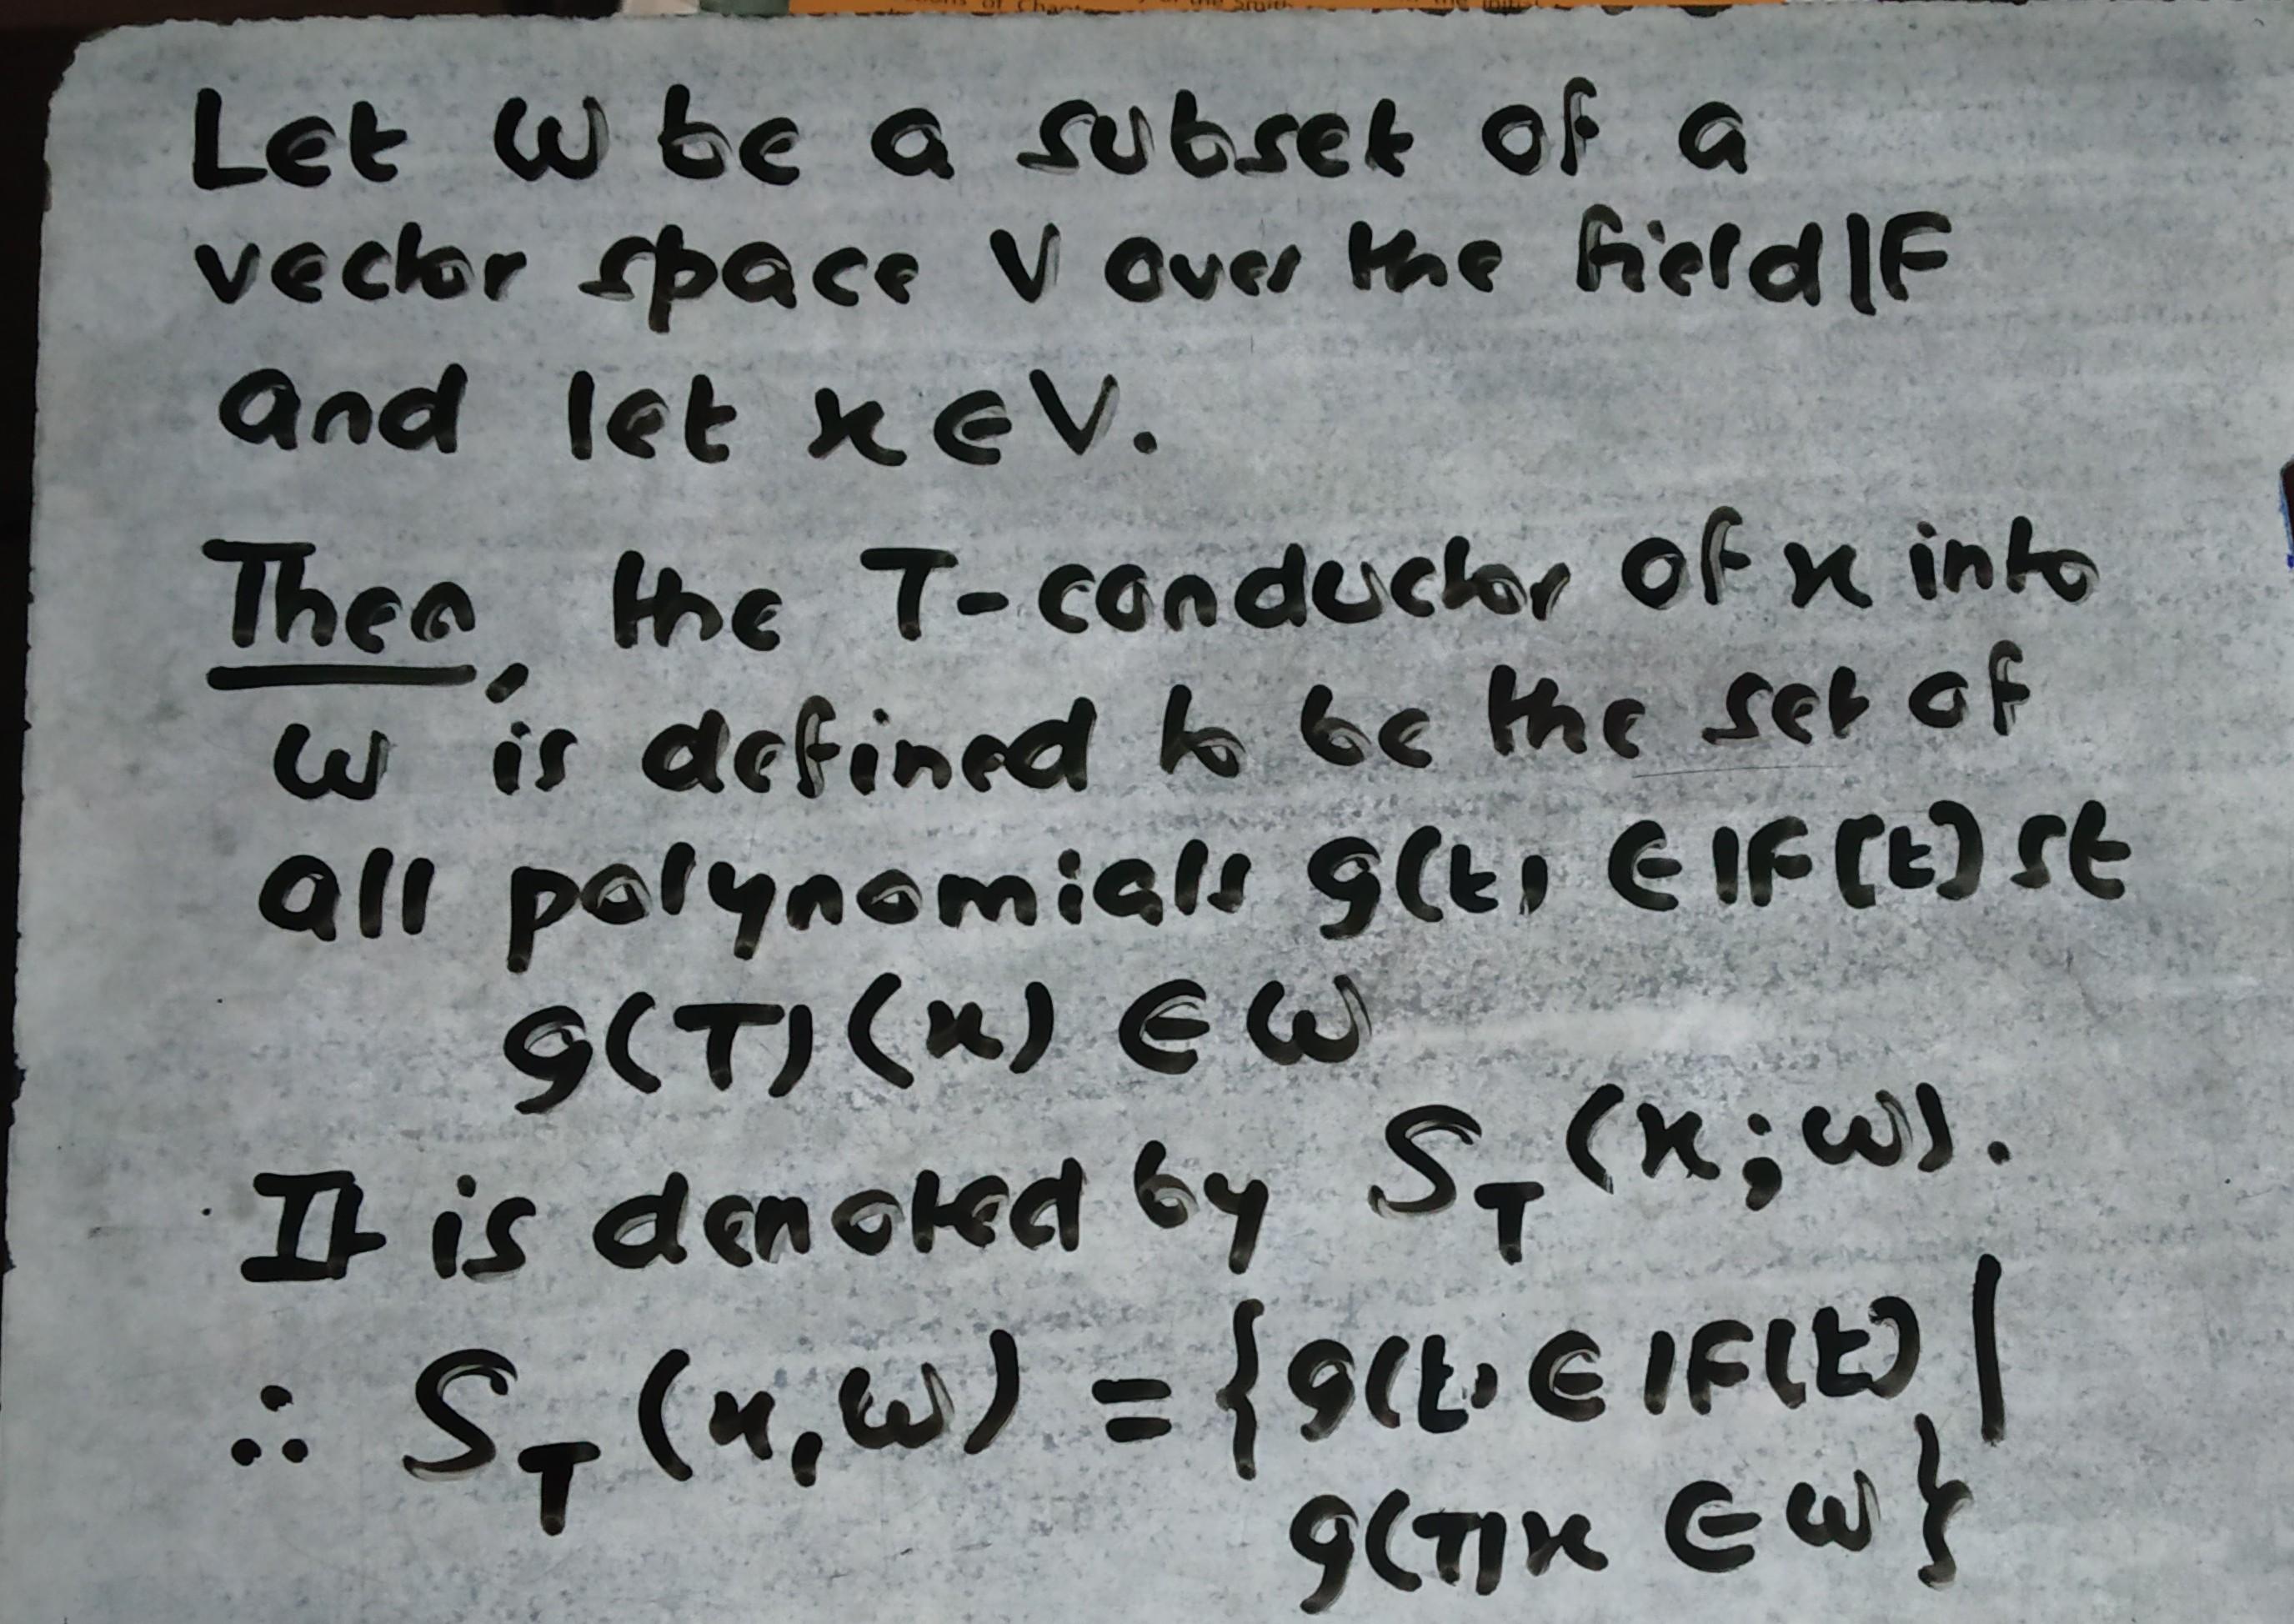 Let W be a subset of a
vector space V over the field 𝔽
and let x ∈ V.
Then, the T-conductor of x into
W is defined to be the set of
all polynomials g(t) ∈ 𝔽[t] st
g(T)(x) ∈ W
It is denoted by S_T (x; W).
∴ S_T (x, W) = {g(t) ∈ 𝔽[t] |
g(T)x ∈ W}